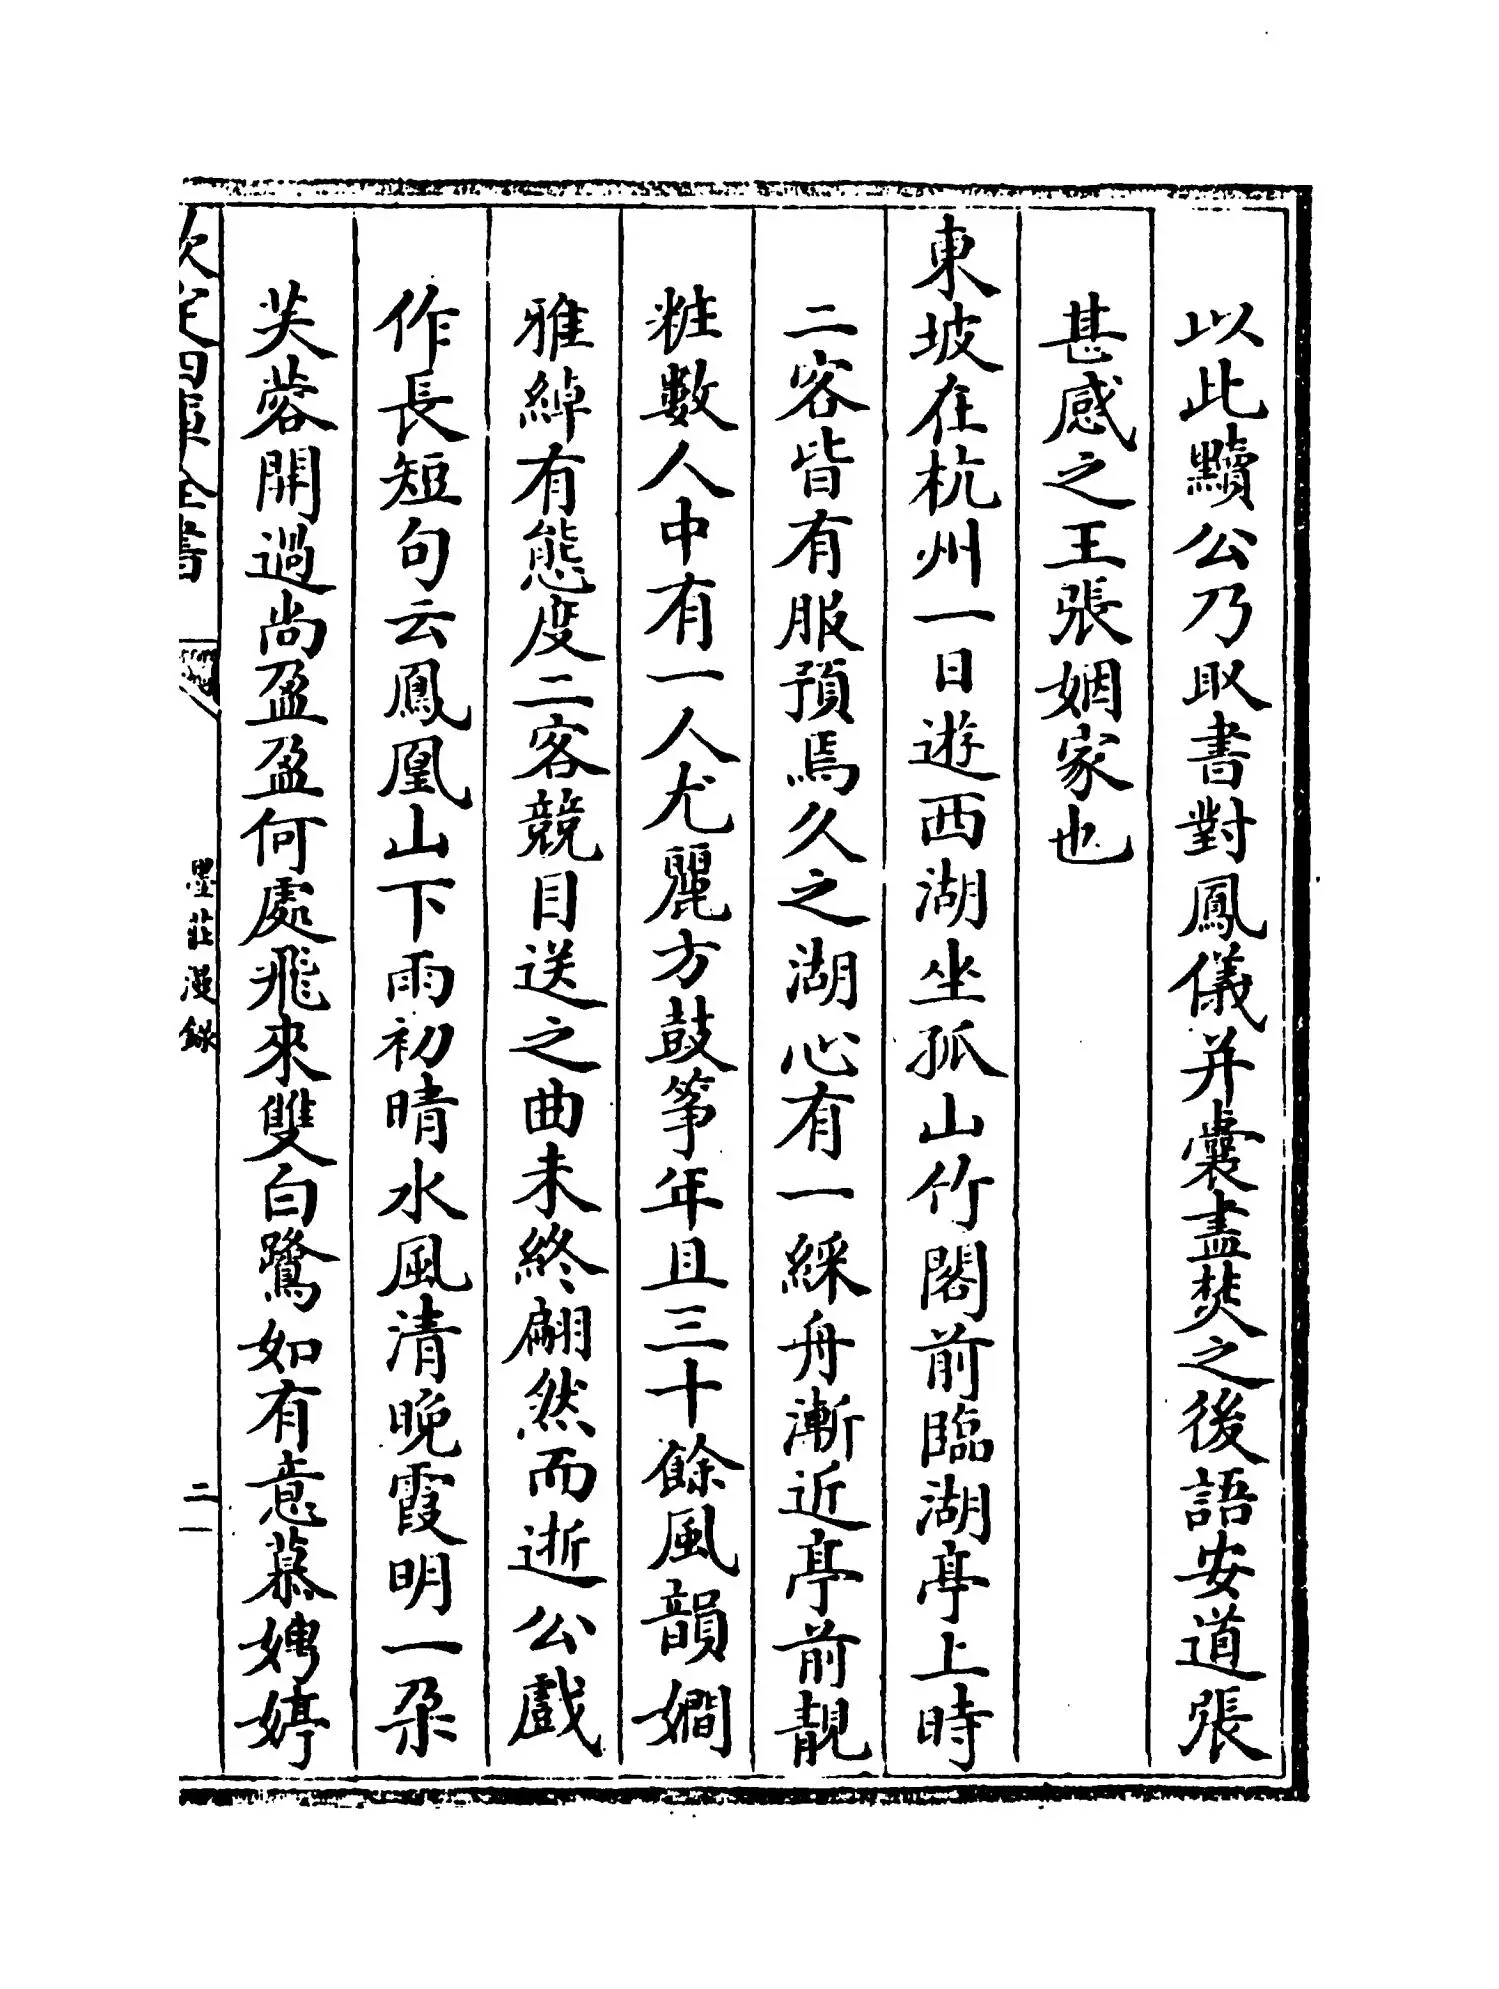 以此黷公乃取書對鳳儀并囊盡焚之後語安道張
甚感之王張姻家也
東坡在杭州一日遊西湖坐孤山竹閣前臨湖亭上時
二客皆有服預焉久之湖心有一綵舟漸近亭前靚
粧數人中有一人尤麗方鼓筝年且三十餘風韻嫺
雅綽有態度二客競目送之曲未終翩然而逝公戲
作長短句云鳳凰山下雨初晴水風清晚霞明一朶
芙蓉開過尚盈盈何處飛來雙白鷺如有意慕娉婷
欽定四庫全書
墨莊漫錄
二